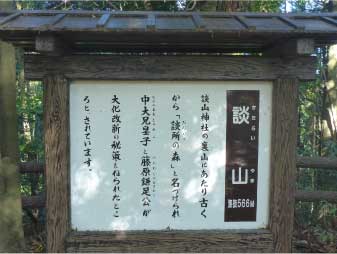 談山
かたらい やま
標高566M
談山神社の裏山にあたり古く
から「談所の森」と名づけられ
中大兄皇子と藤原鎌足公が
大化改新の秘策をねられたとこ
ろと されています。